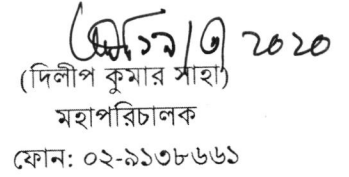 ২০২০
(দিলীপ কুমার সাহা)
মহাপরিচালক
ফোন: ০২-৯১৩৮৬৬১